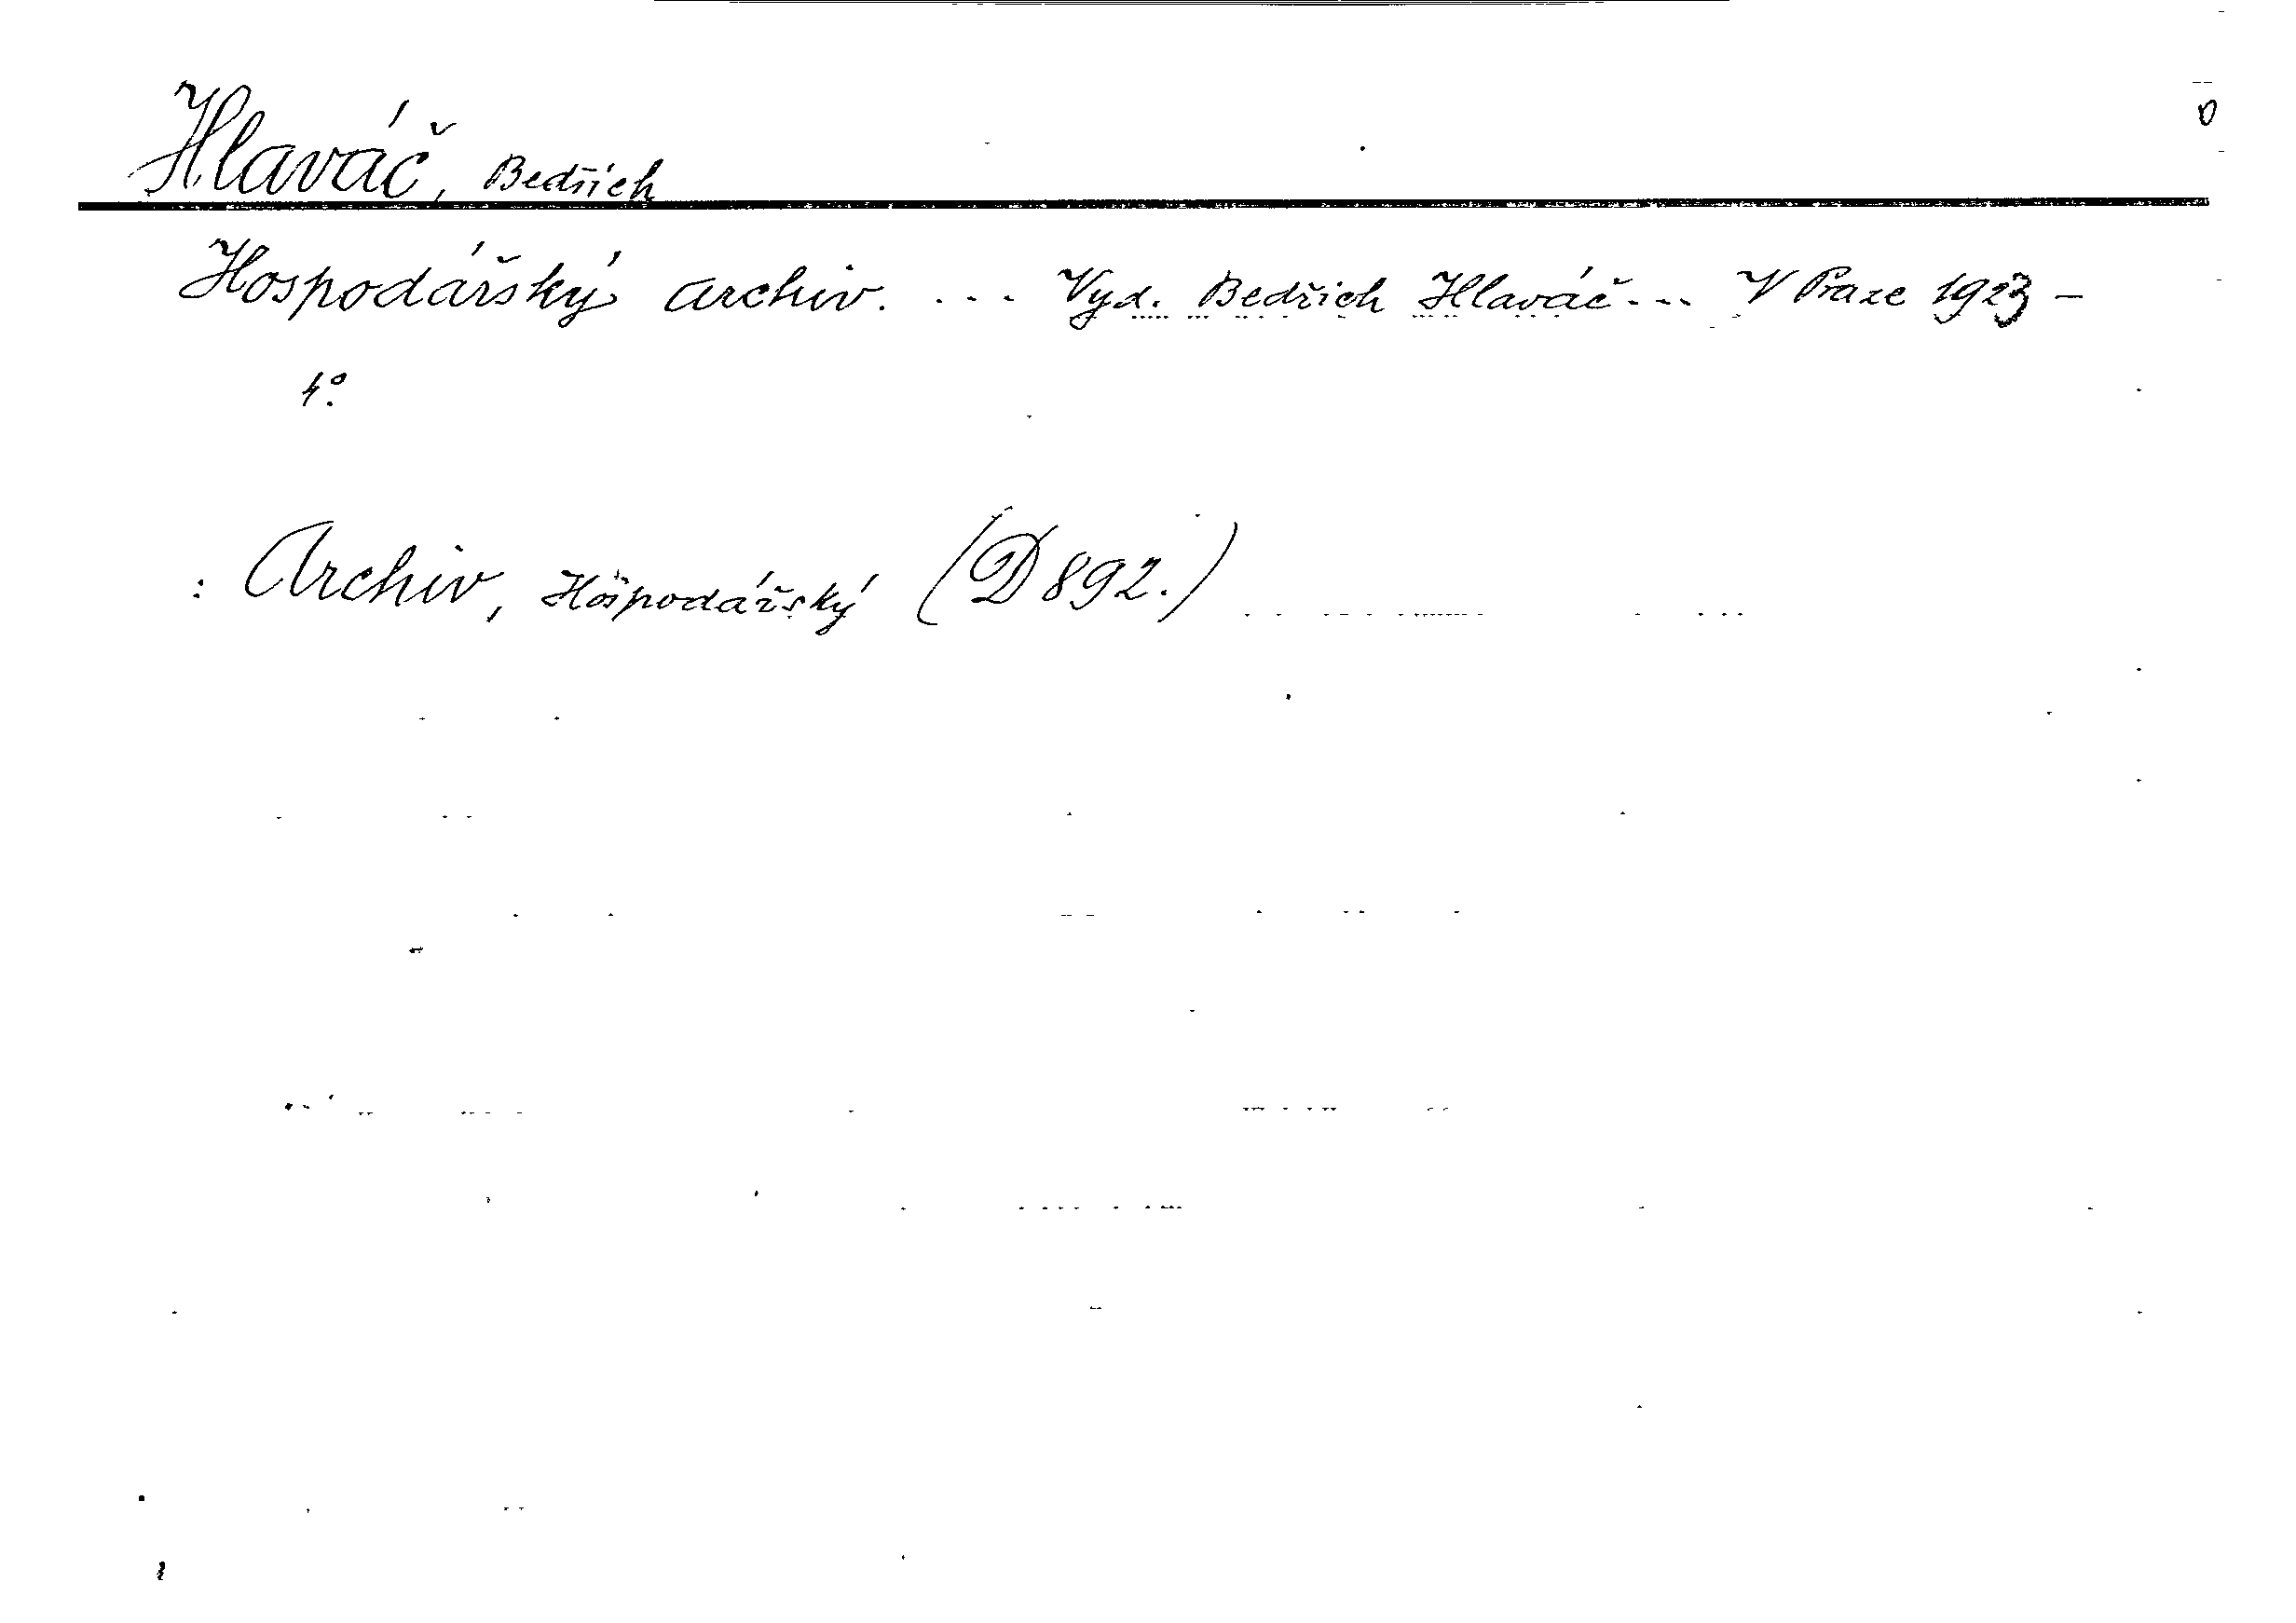 Hlaváč, Bedřich
Hospodářský archiv. ... Vyd. Bedřich Hlaváč... V Praze 1923 –
4°.
: Archiv, Hospodářský (D 892.)